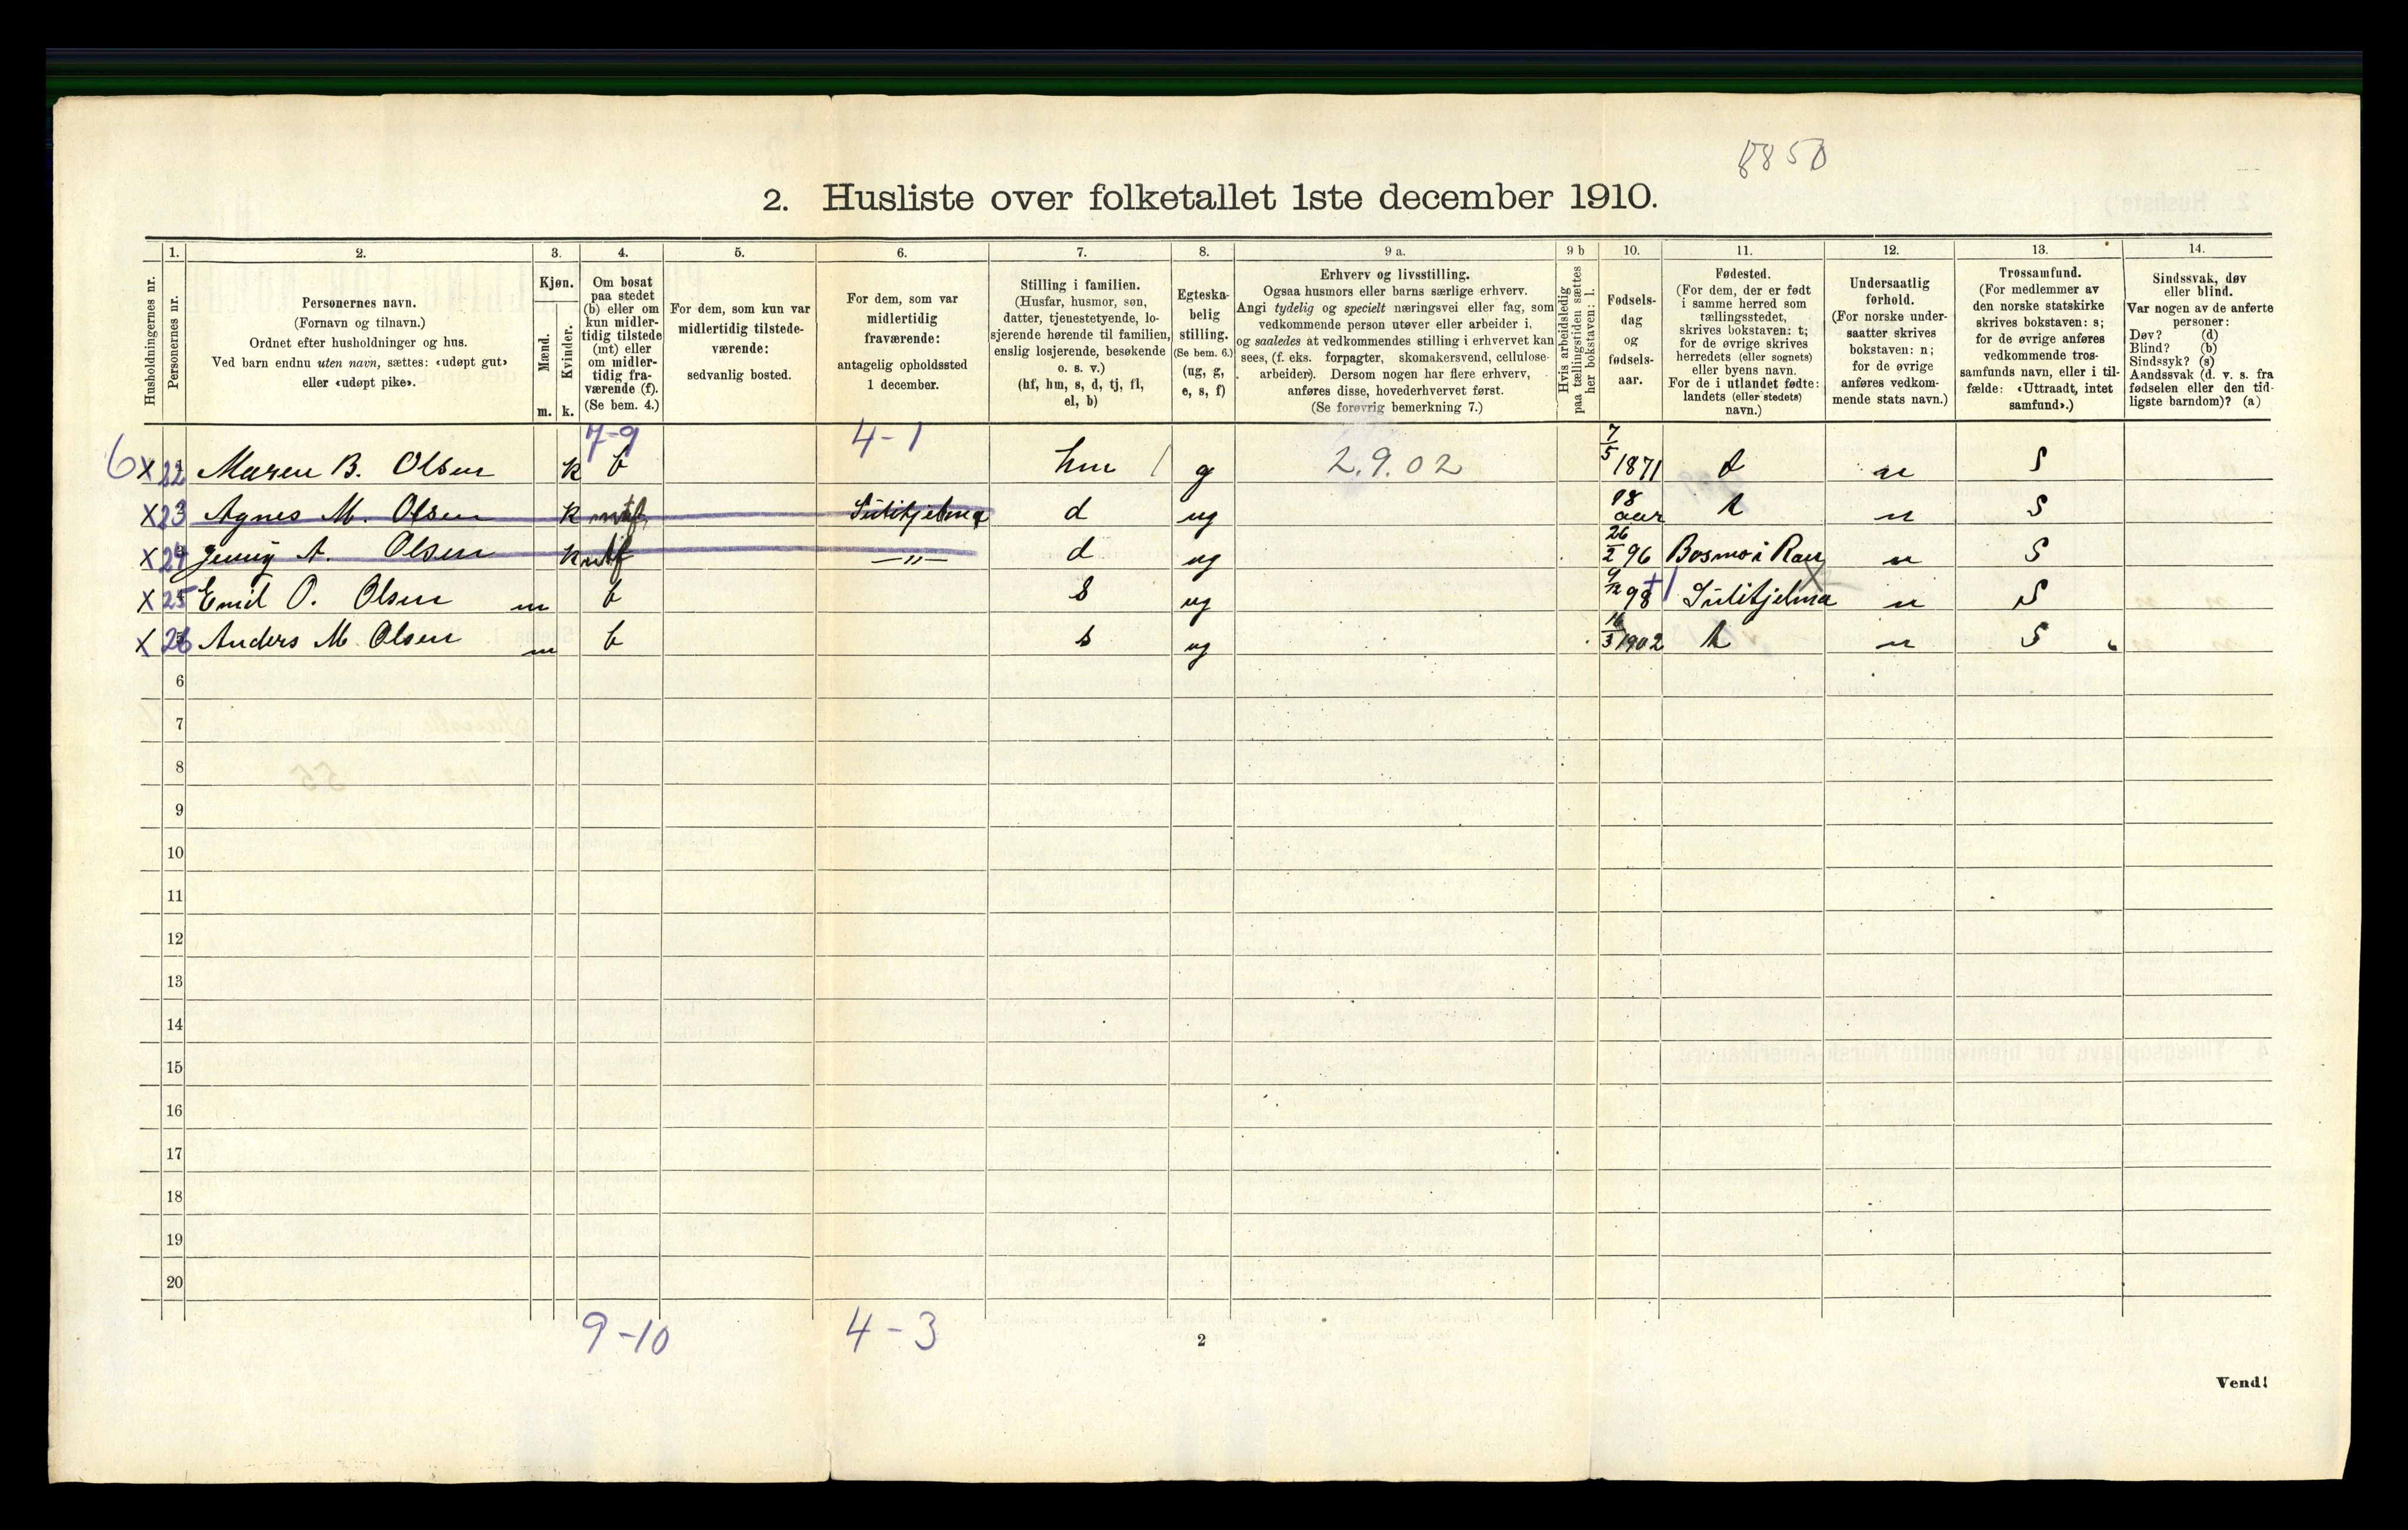 8850
2. Husliste over folketallet 1ste december 1910.
Husholdningernes nr.
1. Personernes nr.
2. Personernes navn.
(Fornavn og tilnavn.)
Ordnet efter husholdninger og hus.
Ved barn endnu uten navn, sættes: «udøpt gut»
eller «udøpt pike».
3. Kjøn.
Mænd. m.
Kvinder. k.
4. Om bosat
paa stedet
(b) eller om
kun midler-
tidig tilstede
(mt) eller
om midler-
tidig fra-
værende (f).
(Se bem. 4.)
5. For dem, som kun var
midlertidig tilstede-
værende:
sedvanlig bosted.
6. For dem, som var
midlertidig
fraværende:
antagelig opholdssted
1 december.
7. Stilling i familien.
(Husfar, husmor, søn,
datter, tjenestetyende, lo-
sjerende hørende til familien,
enslig losjerende, besøkende
o. s. v.)
(hf, hm, s, d, tj, fl,
el, b)
8. Egteska-
belig
stilling.
(Se bem. 6.)
(ug, g,
e, s, f)
9 a. Erhverv og livsstilling.
Ogsaa husmors eller barns særlige erhverv.
Angi tydelig og specielt næringsvei eller fag, som
vedkommende person utøver eller arbeider i,
og saaledes at vedkommendes stilling i erhvervet kan
sees, (f. eks. forpagter, skomakersvend, cellulose-
arbeider). Dersom nogen har flere erhverv,
anføres disse, hovederhvervet først.
(Se forøvrig bemerkning 7.)
9 b Hvis arbeidsledig
paa tællingstiden sættes
her bokstaven: l.
10. Fødsels-
dag
og
fødsels-
aar.
11. Fødested.
(For dem, der er født
i samme herred som
tællingsstedet,
skrives bokstaven: t;
for de øvrige skrives
herredets (eller sognets)
eller byens navn.
For de i utlandet fødte:
landets (eller stedets)
navn.)
12. Undersaatlig
forhold.
(For norske under-
saatter skrives
bokstaven: n;
for de øvrige
anføres vedkom-
mende stats navn.)
13. Trossamfund.
(For medlemmer av
den norske statskirke
skrives bokstaven: s;
for de øvrige anføres
vedkommende tros-
samfunds navn, eller i til-
fælde: «Uttraadt, intet
samfund».)
14. Sindssvak, døv
eller blind.
Var nogen av de anførte
personer:
Døv? (d)
Blind? (b)
Sindssyk? (s)
Aandssvak (d. v. s. fra
fødselen eller den tid-
ligste barndom)? (a)
7-9 4-1
6 x 22 Maren B. Olsen k b hm / g 2.9.02 7/5 1871 t n S
x 23 Agnes M. Olsen k f Sulitjelma d ug 18 aar t n S
x 24 Jenny A. Olsen k f —„— d ug 26/2 96 Bosmo i Ran n S
x 25 Emil O. Olsen m b s ug 98 Sulitjelma n S
x 26 Anders M. Olsen m b s ug 16/3 1902 t n S
6
7
8
9
10
11
12
13
14
15
16
17
18
19
20
9-10 4-3
2
Vend!